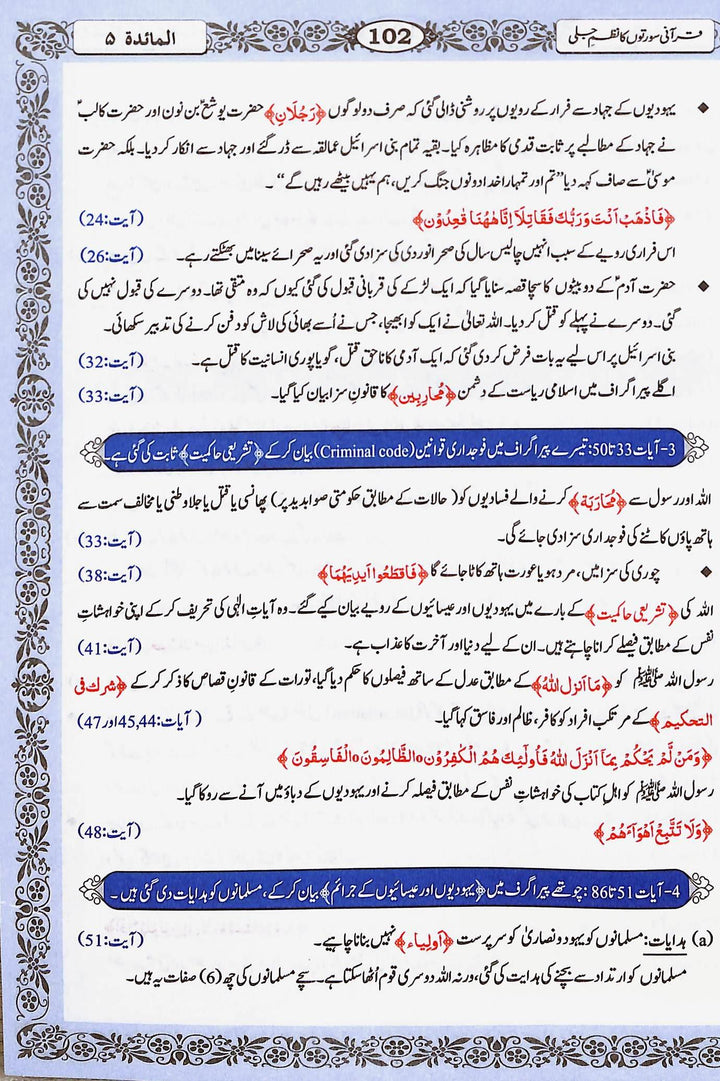 قرآنی سورتوں کا نظمِ جلی
102
المائدة ۵
◆ یہودیوں کے جہاد سے فرار کے رویوں پر روشنی ڈالی گئی کہ صرف دو لوگوں ﴿رَجُلَانِ﴾ حضرت یوشعؑ بن نون اور حضرت کالبؑ
نے جہاد کے مطالبے پر ثابت قدمی کا مظاہرہ کیا۔ بقیہ تمام بنی اسرائیل عمالقہ سے ڈر گئے اور جہاد سے انکار کر دیا۔ بلکہ حضرت
موسیٰؑ سے صاف کہہ دیا ”تم اور تمہارا خدا دونوں جنگ کریں، ہم یہیں بیٹھے رہیں گے“۔
﴿فَاذْهَبْ اَنْتَ وَرَبُّكَ فَقَاتِلَآ اِنَّا هٰهُنَا قٰعِدُوْن﴾ (آیت:24)
اس فراری رویے کے سبب انہیں چالیس سال کی صحرا نوردی کی سزا دی گئی اور یہ صحرائے سینا میں بھٹکتے رہے۔ (آیت:26)
◆ حضرت آدمؑ کے دو بیٹوں کا سچا قصہ سنایا گیا کہ ایک لڑکے کی قربانی قبول کی گئی کیوں کہ وہ متقی تھا۔ دوسرے کی قبول نہیں کی
گئی۔ دوسرے نے پہلے کو قتل کر دیا۔ اللہ تعالیٰ نے ایک کوا بھیجا، جس نے اُسے بھائی کی لاش کو دفن کرنے کی تدبیر سکھائی۔
بنی اسرائیل پر اس لیے یہ بات فرض کر دی گئی کہ ایک آدمی کا ناحق قتل، گویا پوری انسانیت کا قتل ہے۔ (آیت:32)
اگلے پیراگراف میں اسلامی ریاست کے دشمن ﴿مُحاربین﴾ کا قانونِ سزا بیان کیا گیا۔ (آیت:33)
3- آیات 33 تا 50: تیسرے پیراگراف میں فوجداری قوانین (Criminal code) بیان کر کے ﴿تشریعی حاکیت﴾ ثابت کی گئی ہے۔
اللہ اور رسول سے ﴿مُحَارَبَة﴾ کرنے والے فسادیوں کو (حالات کے مطابق حکومتی صوابدید پر) پھانسی یا قتل یا جلاوطنی یا مخالف سمت سے
ہاتھ پاؤں کاٹنے کی فوجداری سزا دی جائے گی۔ (آیت:33)
◆ چوری کی سزا میں، مرد ہو یا عورت ہاتھ کاٹا جائے گا ﴿فَاقْطَعُوا اَيْدِيَهُمَا﴾ (آیت:38)
اللہ کی ﴿تشریعی حاکیت﴾ کے بارے میں یہودیوں اور عیسائیوں کے رویے بیان کیے گئے۔ وہ آیاتِ الٰہی کی تحریف کر کے اپنی خواہشاتِ
نفس کے مطابق فیصلے کرانا چاہتے ہیں۔ ان کے لیے دنیا اور آخرت کا عذاب ہے۔ (آیت:41)
رسول اللہ ﷺ کو ﴿مَا اَنزل اللهُ﴾ کے مطابق عدل کے ساتھ فیصلوں کا حکم دیا گیا، تورات کے قانونِ قصاص کا ذکر کر کے ﴿شرک فی
التحکیم﴾ کے مرتکب افراد کو کافر، ظالم اور فاسق کہا گیا۔ (آیات:45,44 اور 47)
﴿وَمَنْ لَّمْ يَحْكُمْ بِمَآ اَنْزَلَ اللهُ فَاُولٰٓئِكَ هُمُ الْكٰفِرُوْن o الظَّالِمُونَ o الْفَاسِقُونَ﴾
رسول اللہ ﷺ کو اہلِ کتاب کی خواہشاتِ نفس کے مطابق فیصلہ کرنے اور یہودیوں کے دباؤ میں آنے سے روکا گیا۔
﴿وَلَا تَتَّبِعْ اَهْوَآءَهُمْ﴾ (آیت:48)
4- آیات 51 تا 86: چوتھے پیراگرف میں ﴿یہودیوں اور عیسائیوں کے جرائم﴾ بیان کر کے، مسلمانوں کو ہدایات دی گئی ہیں۔
(a) ہدایات: مسلمانوں کو یہود و نصاریٰ کو سرپرست ﴿اَولِیاء﴾ نہیں بنانا چاہیے۔ (آیت:51)
مسلمانوں کو ارتداد سے بچنے کی ہدایت کی گئی، ورنہ اللہ دوسری قوم اُٹھا سکتا ہے۔ سچے مسلمانوں کی چھ (6) صفات یہ ہیں۔